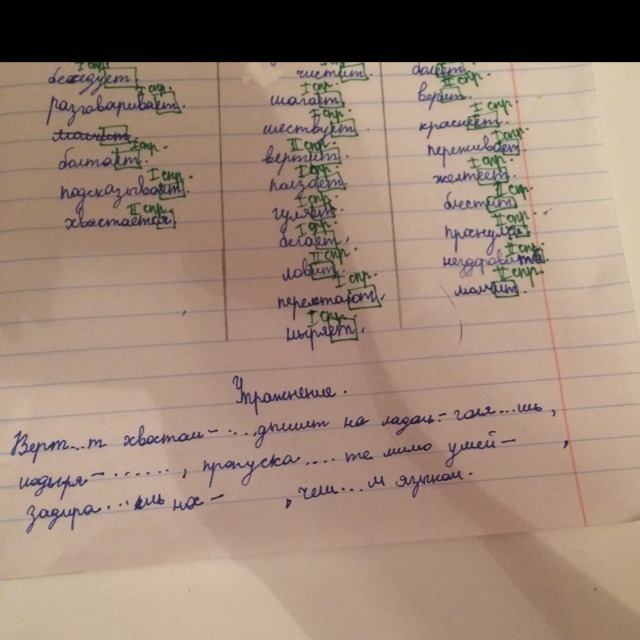 беседует. I спр.
разговаривает. I спр.
молчит.
болтает. I спр.
подсказывает. I спр.
хвастается. II спр.
чистит.
шагает. I спр.
шествует. I спр.
вертит. II спр.
ползает. I спр.
гуляет. I спр.
бегает. I спр.
ловит. II спр.
перелетает. I спр.
ныряет. I спр.
болеет.
верит. II спр.
краснеет. I спр.
переживает. I спр.
желтеет. I спр.
блестит. II спр.
проснулся. I спр.
нездоровится. II спр.
молчит. II спр.
Упражнение.
Верт...т хвостом - ... , дышит на ладан - ганя...шь,
лодыря - ......, пропуска....те мимо ушей - ,
задира...шь нос - , чеш...м языком.